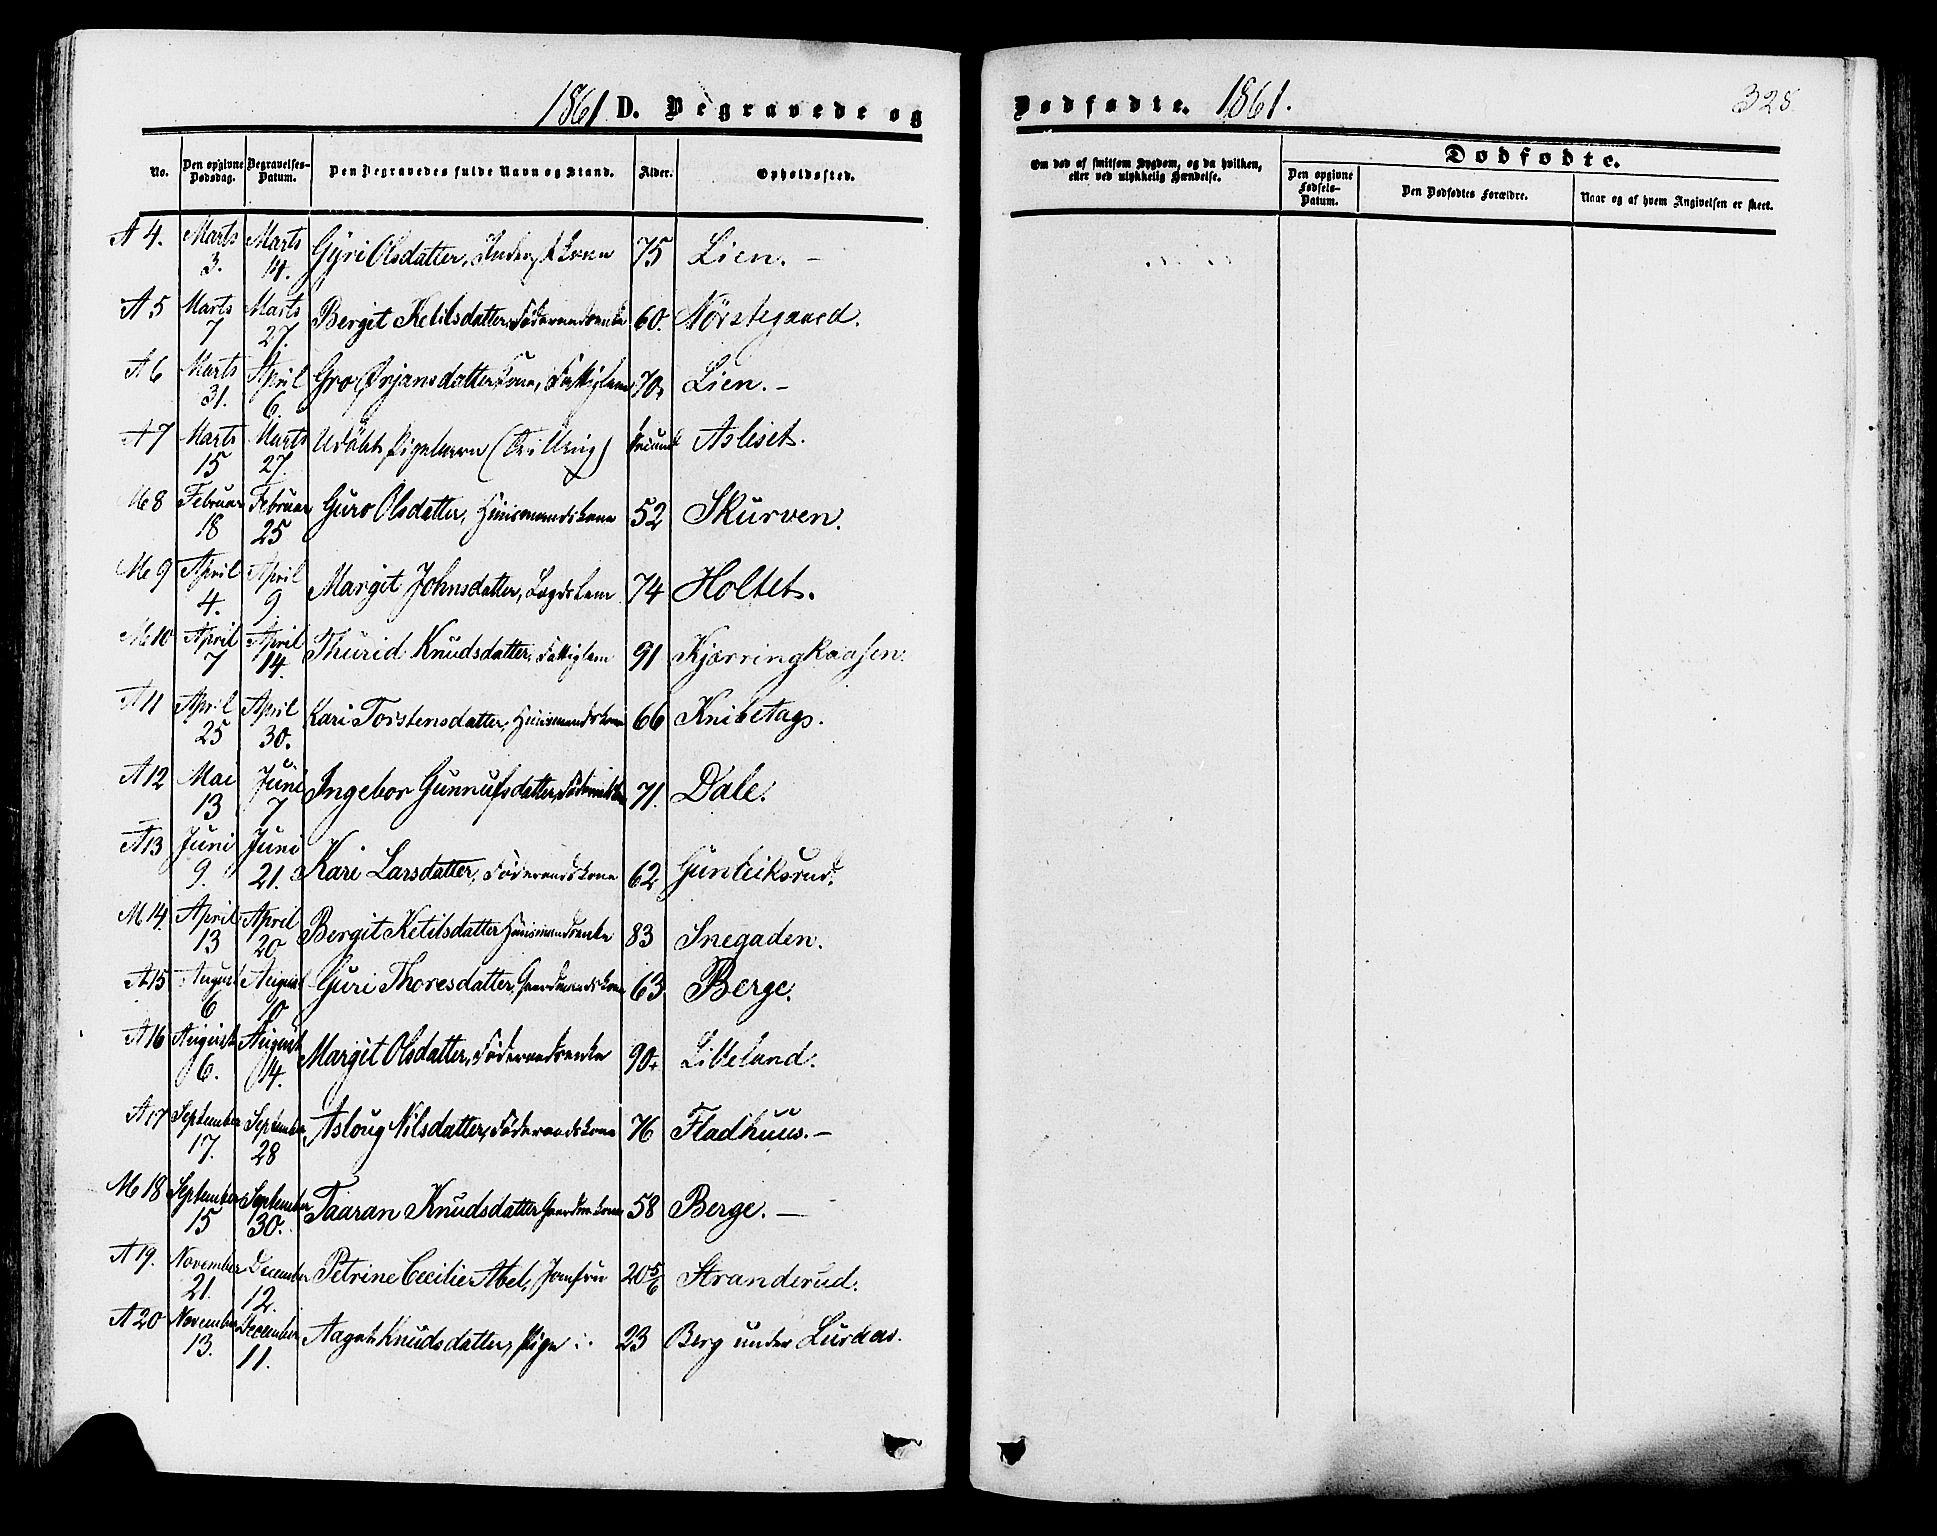 1861 D. Begravede og
No. Den opgivne Dødsdag. Begravelses-Datum. Den Begravedes fulde Navn og Stand. Alder. Opholdssted.
A 4. Marts 3. Marts 14. Gyri Olsdatter, Inderstkone 75 Lien. –
A 5 Marts 7 Marts 27. Bergit Ketilsdatter, Föderaadsenke 60. Nörstegaard.
A 6 Marts 31. April 6. Gro Örjansdatter, Kone, Fattiglem 70. Lien. –
A 7 Marts 15 Marts 27. Udöbt Pigebarn (Trilling) Asleset.
M 8 Februar 18 Februar 25 Guro Olsdatter, Huusmandskone 52 Skurven.
M 9 April 4. April 9. Margit Johnsdatter, Lægdslem 74 Holtet.
M 10 April 7 April 14. Thurid Knudsdatter, Fattiglem 91 Kjærringkaasen.
A 11 April 25 April 30. Kari Torstensdatter, Huusmandskone 66 Knibetags.
A 12 Mai 13 Juni 7 Ingebor Gunnufsdatter, 71. Dale.
A 13 Juni 9. Juni 21. Kari Larsdatter, Föderaadskone 62 Gunleiksrud.
M 14. April 13 April 20 Bergit Ketilsdatter Huusmandsenke 83 Snegaden.
A 15 August 6 August 10 Guri Thoresdatter, Gaardmandskone 63. Berge.
A 16 August 6. August 14. Margit Olsdatter, Föderaadsenke 90. Libeland.
A 17 September 17. September 28 Asloug Nilsdatter, Föderaadskone 76 Fladhuus. –
M 18 September 15 September 30. Taaran Knudsdatter Gaardmkone 58 Berge. –
A 19. November 21. December 12. Petrine Cecilie Abel, Jomfru 20 5/6 Stranderud.
A 20 November 13. December 11. Aagot Knudsdatter, Pige 23 Berg under Lurdal.
Dødfødte. 1861.
328
Om død af smitsom Sygdom, og da hvilken, eller ved ulykkelig Hændelse.
Dødfødte.
Den opgivne Fødsels-Datum. Den Dødfødtes Forældre. Naar og af hvem Angivelsen er skeet.